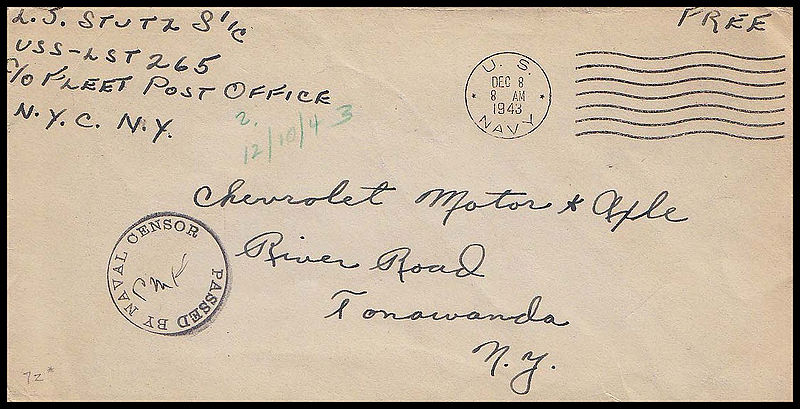 L.J. STUTZ S1/C
USS-LST 265
C/O FLEET POST OFFICE
N.Y.C. N.Y.
FREE
U.S.
DEC 8
8 AM
1943
NAVY
2.
12/10/43
Chevrolet Motor & Axle
River Road
Tonawanda
N.Y.
PASSED BY NAVAL CENSOR
72